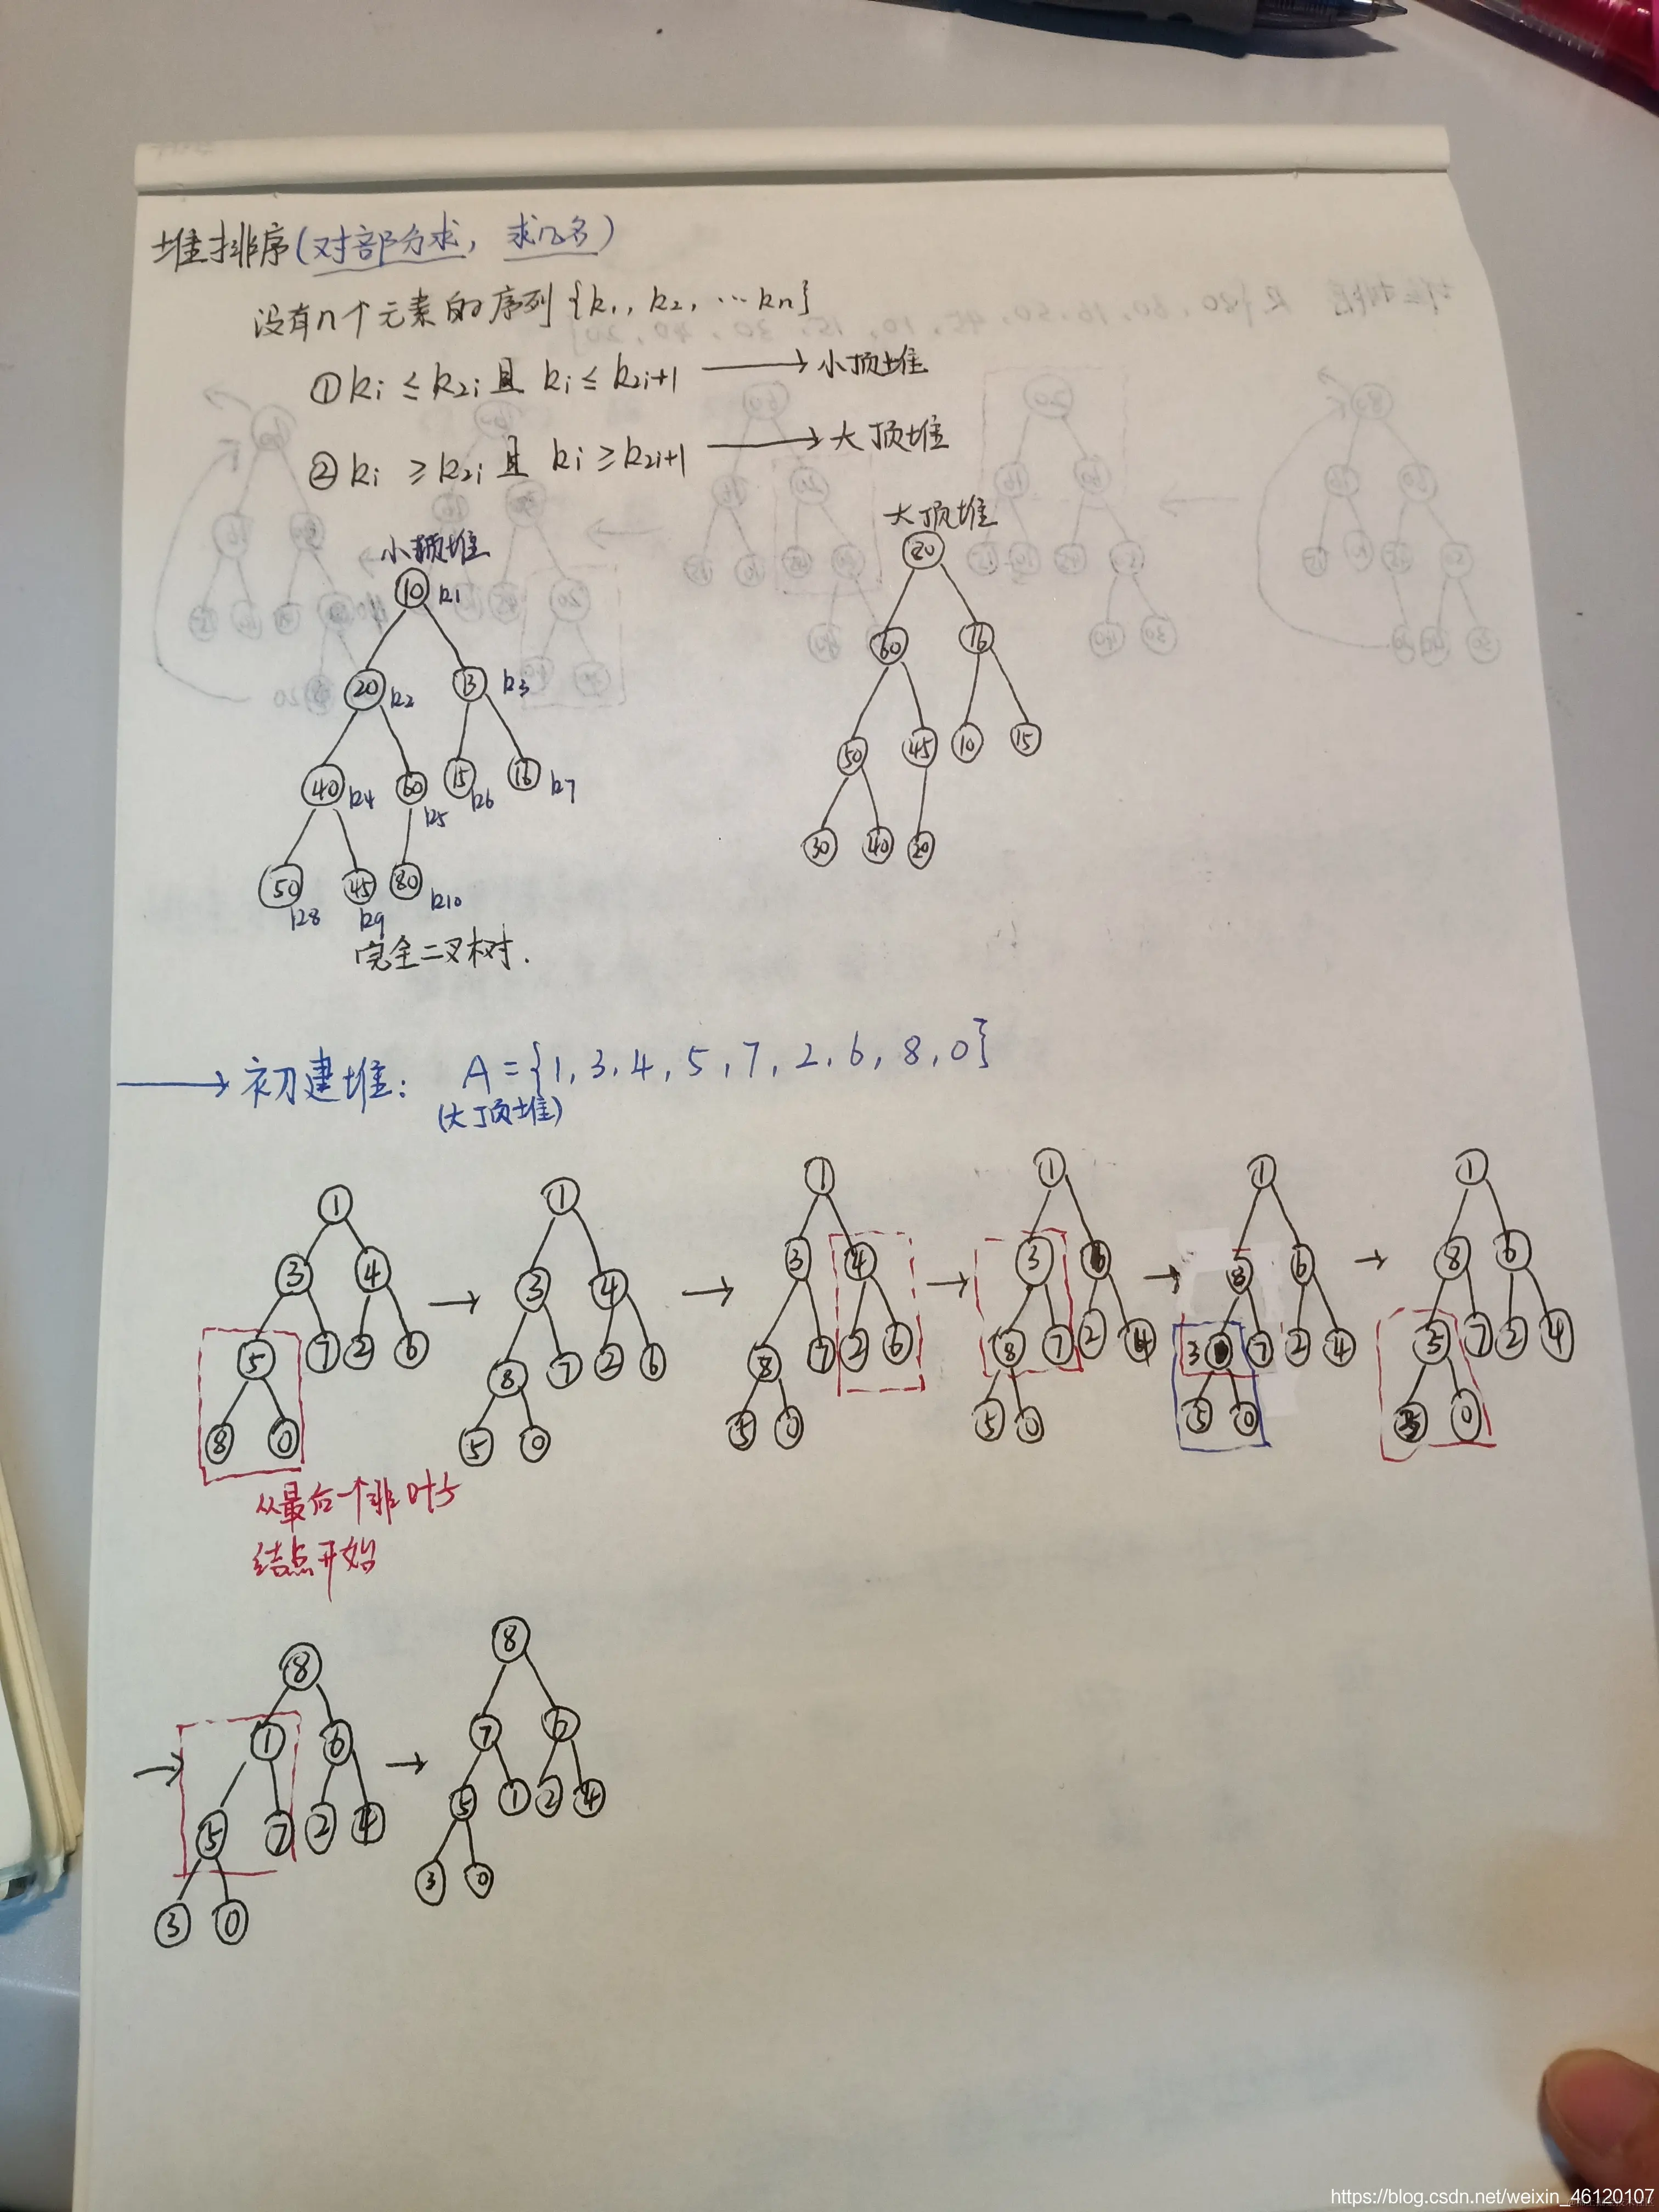 堆排序(对部分求, 求几名)
没有n个元素的序列{k1, k2, ⋯kn}
①ki ≤ k2i 且 ki ≤ k2i+1 → 小顶堆
②ki ≥ k2i 且 ki ≥ k2i+1 → 大顶堆
小顶堆
大顶堆
10 k1
20 k2 13 k3
40 k4 60 k5 15 k6 16 k7
50 k8 45 k9 80 k10
完全二叉树.
60 16
50 45 10 15
30 40 20
→初建堆: A={1,3,4,5,7,2,6,8,0}
(大顶堆)
1
3 4
5 7 2 6
8 0
从最后一个非叶子
结点开始
→
1
3 4
8 7 2 6
5 0
→
1
3 4
8 7 2 6
5 0
→
1
3 6
8 7 2 4
5 0
→
1
8 6
3 7 2 4
5 0
→
1
8 6
5 7 2 4
3 0
→
8
1 6
5 7 2 4
3 0
→
8
7 6
5 1 2 4
3 0
https://blog.csdn.net/weixin_46120107